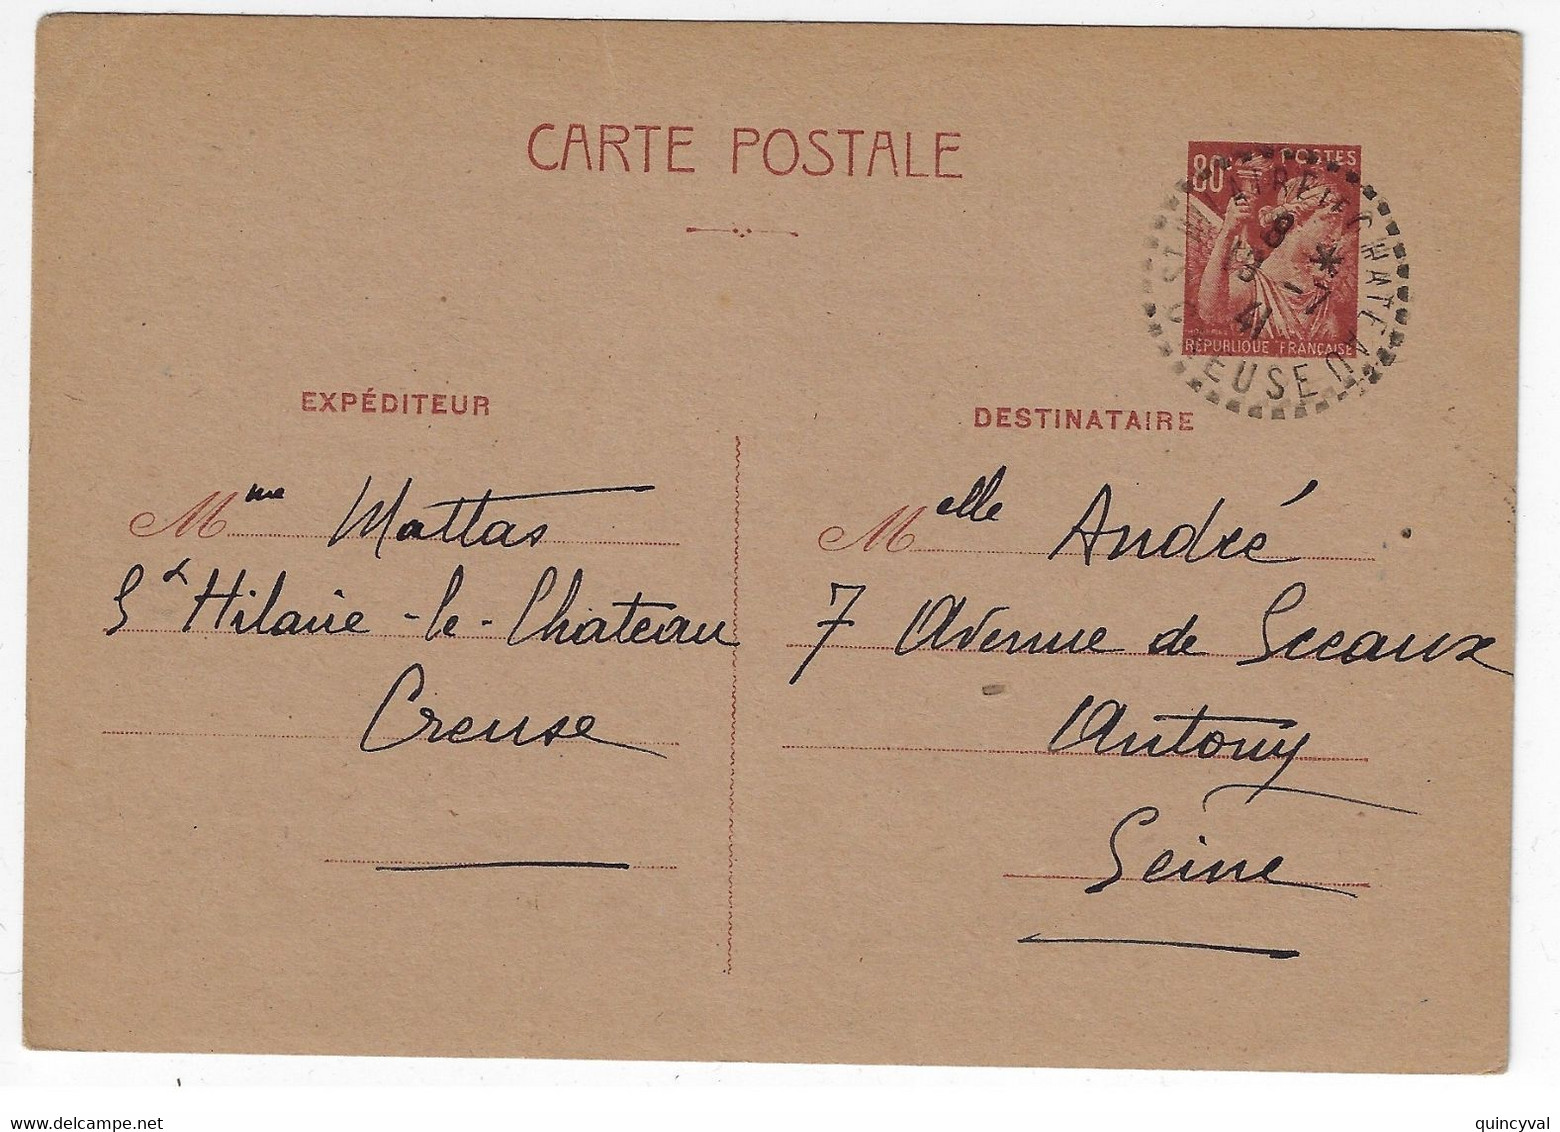 CARTE POSTALE
80c POSTES
RÉPUBLIQUE FRANÇAISE
ST HILAIRE-LE-CHATEAU
18
8 - 7
41
EUSE
EXPÉDITEUR
Mme Mattas
St Hilaire-le-Chateau
Creuse
DESTINATAIRE
Melle André
7 Avenue de Sceaux
Antony
Seine
delcampe.net
quincyval